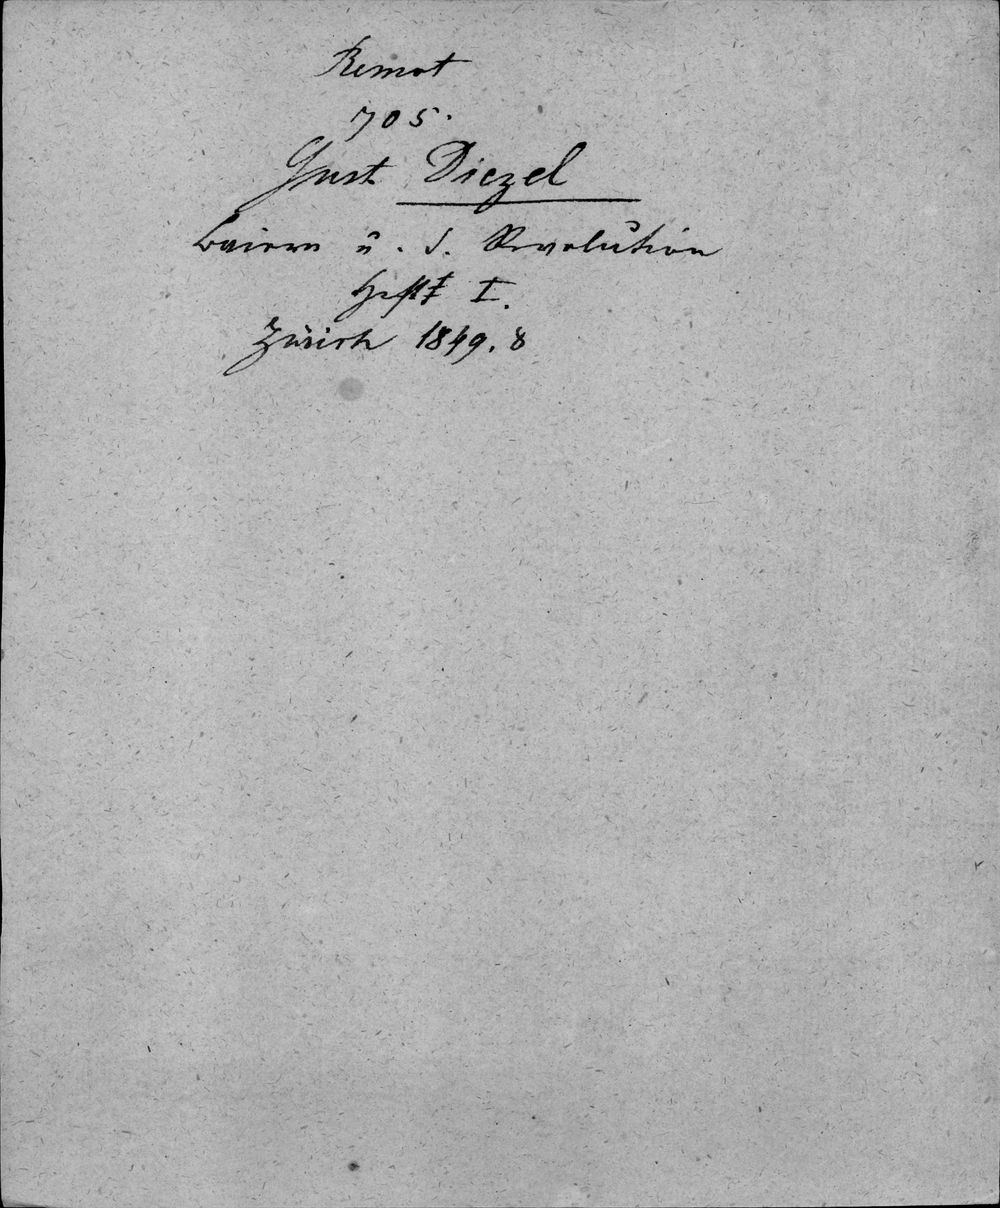 Remot
705.
Gust Diezel
Baiern u. d. Revolution
Heft I.
Zürich 1849. 8